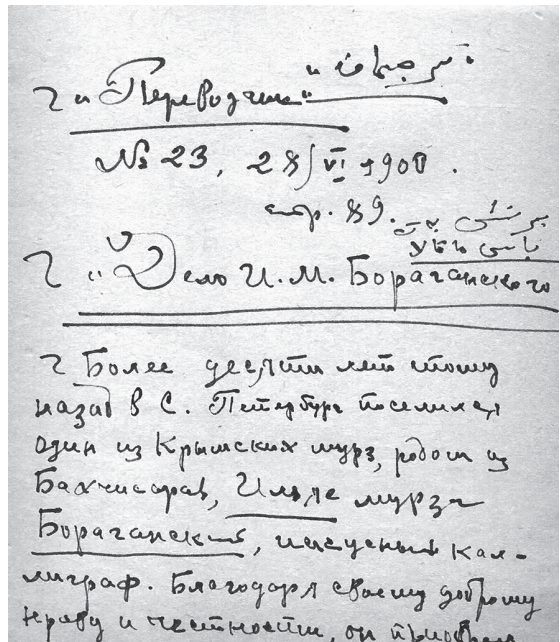 "ترجمان"
"Переводчик"
№ 23, 28/VI 1900.
стр. 89.
باش ماقاله
"Дело И. М. Бораганского
Более десяти лет тому
назад в С. Петербурге поселился
один из Крымских мурз, родом из
Бахчисарая, Ильяс мурза
Бораганский, искусный кал-
лиграф. Благодаря своему доброму
нраву и честности, он приобрел